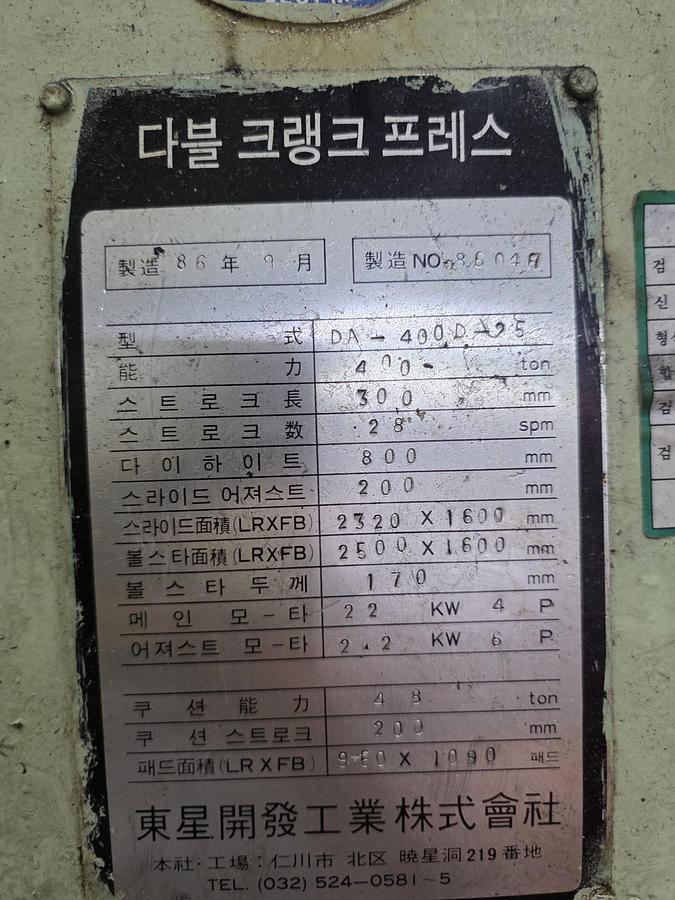 다블 크랭크 프레스
製造 86 年 9 月
製造 NO
型 式 DA-400D-25
能 力 400 ton
스트로크長 300 mm
스트로크数 28 spm
다이하이트 800 mm
스라이드 어져스트 200 mm
스라이드面積(LRXFB) 2320 X 1600 mm
볼스타面積(LRXFB) 2500 X 1600 mm
볼스타두께 170 mm
메인 모-타 22 KW 4 P
어져스트 모-타 2.2 KW 6 P
쿠션能力 48 ton
쿠션 스트로크 200 mm
패드面積(LRXFB) X 1090 패드
東星開發工業株式會社
本社·工場: 仁川市 北区 暁星洞 219 番地
TEL. (032) 524-0581~5
검
신
형식
합
검
검